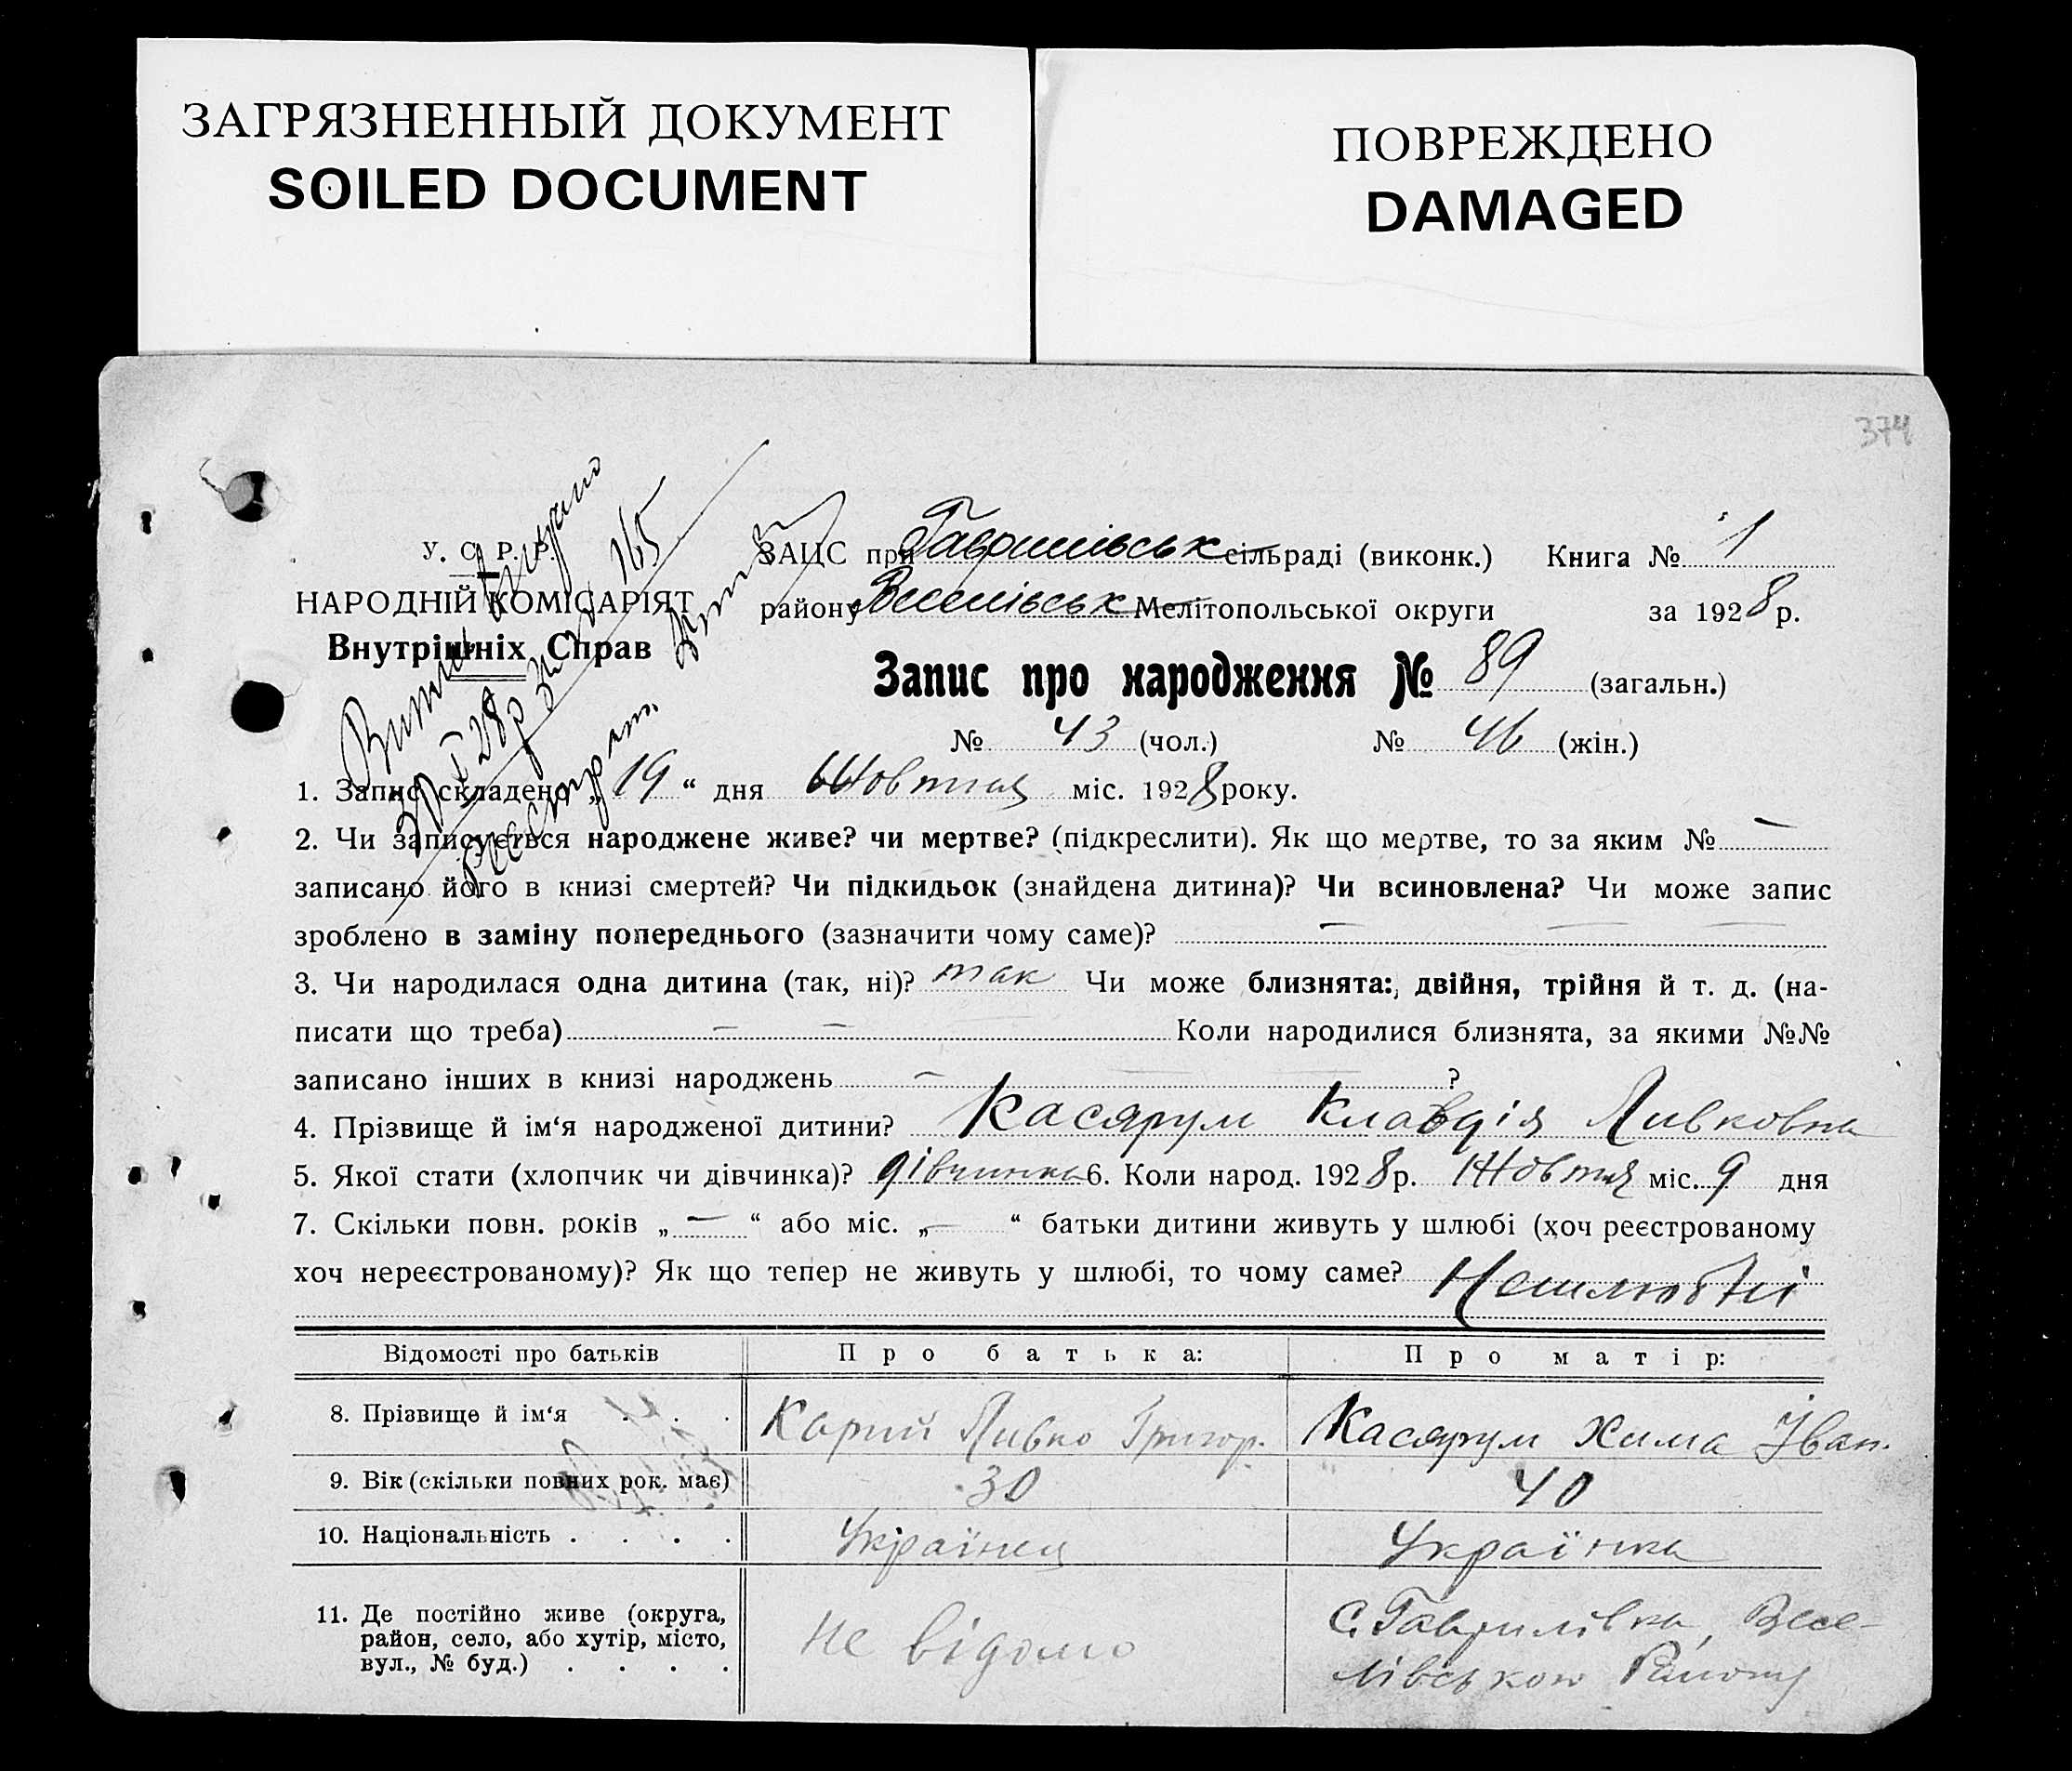 ЗАГРЯЗНЕННЫЙ ДОКУМЕНТ
SOILED DOCUMENT
ПОВРЕЖДЕНО
DAMAGED
374
У. С. Р. Р.
НАРОДНІЙ КОМІСАРІЯТ
Внутрішніх Справ
ЗАЦС при Гаврилівськ сільраді (виконк.) Книга № 1
району Веселівськ Мелітопольської округи за 1928 р.
Запис про народження № 89 (загальн.)
№ 43 (чол.) № 46 (жін.)
1. Запис складено „19“ дня Жовтня міс. 1928 року.
2. Чи записується народжене живе? чи мертве? (підкреслити). Як що мертве, то за яким № —
записано його в книзі смертей? Чи підкидьок (знайдена дитина)? Чи всиновлена? Чи може запис
зроблено в заміну попереднього (зазначити чому саме)? —
3. Чи народилася одна дитина (так, ні)? так Чи може близнята: двійня, трійня й т. д. (на-
писати що треба) — — Коли народилися близнята, за якими №№
записано інших в книзі народжень — ?
4. Прізвище й ім‘я народженої дитини? Касярум Клавдія Ливковна
5. Якої стати (хлопчик чи дівчинка)? дівчинка 6. Коли народ. 1928 р. Жовтня міс. 9 дня
7. Скільки повн. років „—“ або міс. „—“ батьки дитини живуть у шлюбі (хоч реєстрованому
хоч нереєстрованому)? Як що тепер не живуть у шлюбі, то чому саме? Нешлюбні
Відомості про батьків Про батька: Про матір:
8. Прізвище й ім‘я . . . Карий Ливко Григор. Касярум Хима Іван.
9. Вік (скільки повних рок. має) 30 40
10. Національність . . . . Українец Українка
11. Де постійно живе (округа,
район, село, або хутір, місто,
вул., № буд.) . . . .
Не відомо
С. Гаврилівка, Весе-
лівського Району
Витяг видано
165